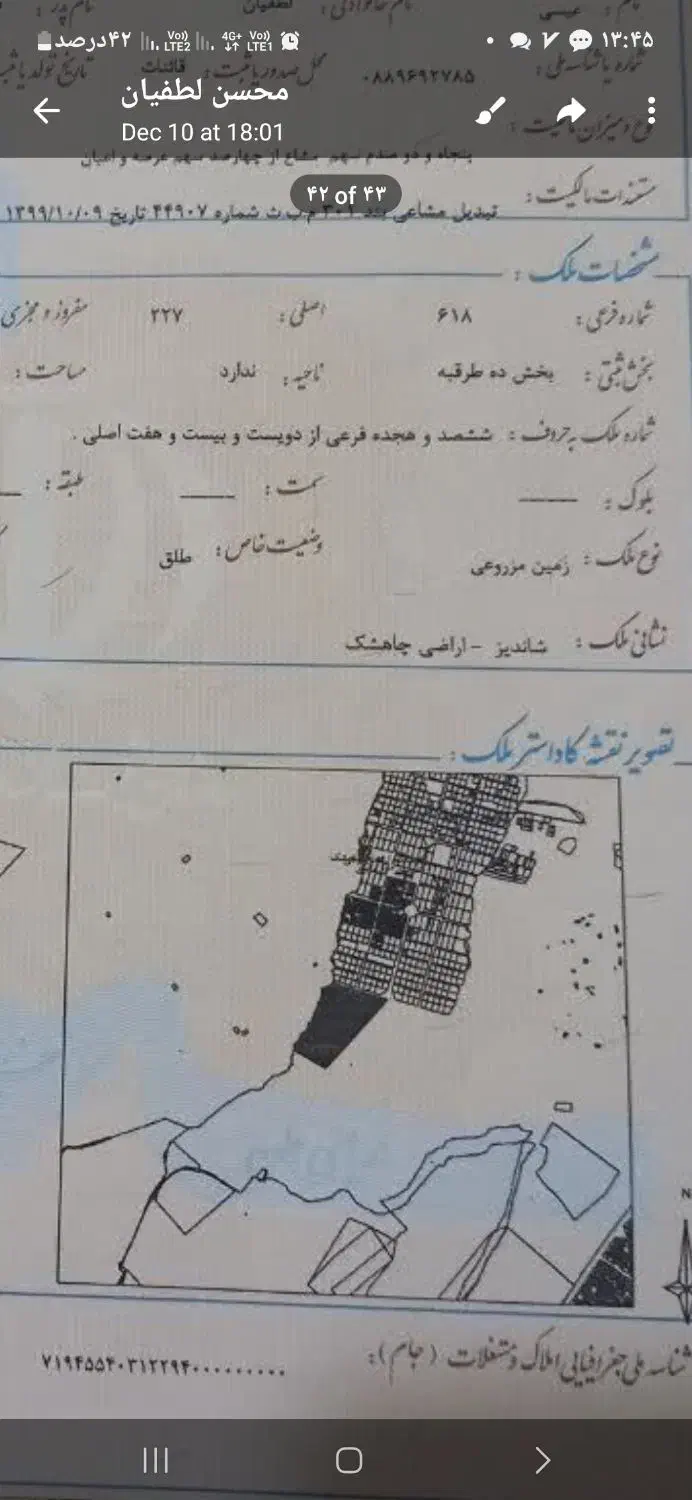 ۴۲درصد Vo)) LTE2 4G+ Vo)) LTE1 ۱۳:۴۵
نام : عیسی نام خانوادگی : لطفیان نام پدر :
شماره یا شناسه ملی : ۰۸۸۹۶۹۲۷۸۵ محل صدور یا ثبت : قائنات تاریخ تولد یا ثبت
محسن لطفیان
Dec 10 at 18:01
نوع و میزان مالکیت :
پنجاه و دو صدم سهم مشاع از چهارصد سهم عرصه و اعیان
۴۲ of ۴۳
مستندات مالکیت : تبدیل مشاعی بند ۳۰۱ م.ب.ث شماره ۴۴۹۰۷ تاریخ ۱۳۹۹/۱۰/۰۹
مشخصات ملک :
شماره فرعی : ۶۱۸ اصلی : ۲۲۷ مفروز و مجزی
بخش ثبتی : بخش ده طرقبه ناحیه : ندارد مساحت :
شماره ملک به حروف : ششصد و هجده فرعی از دویست و بیست و هفت اصلی .
بلوک : سمت : طبقه :
نوع ملک : زمین مزروعی وضعیت خاص : طلق
نشانی ملک : شاندیز - اراضی چاهشک
تصویر نقشه کاداستر ملک :
N
شناسه ملی جغرافیایی املاک و مستغلات ( جام ) : ۷۱۹۴۵۵۴۰۳۱۲۲۹۴۰۰۰۰۰۰۰۰۰۰